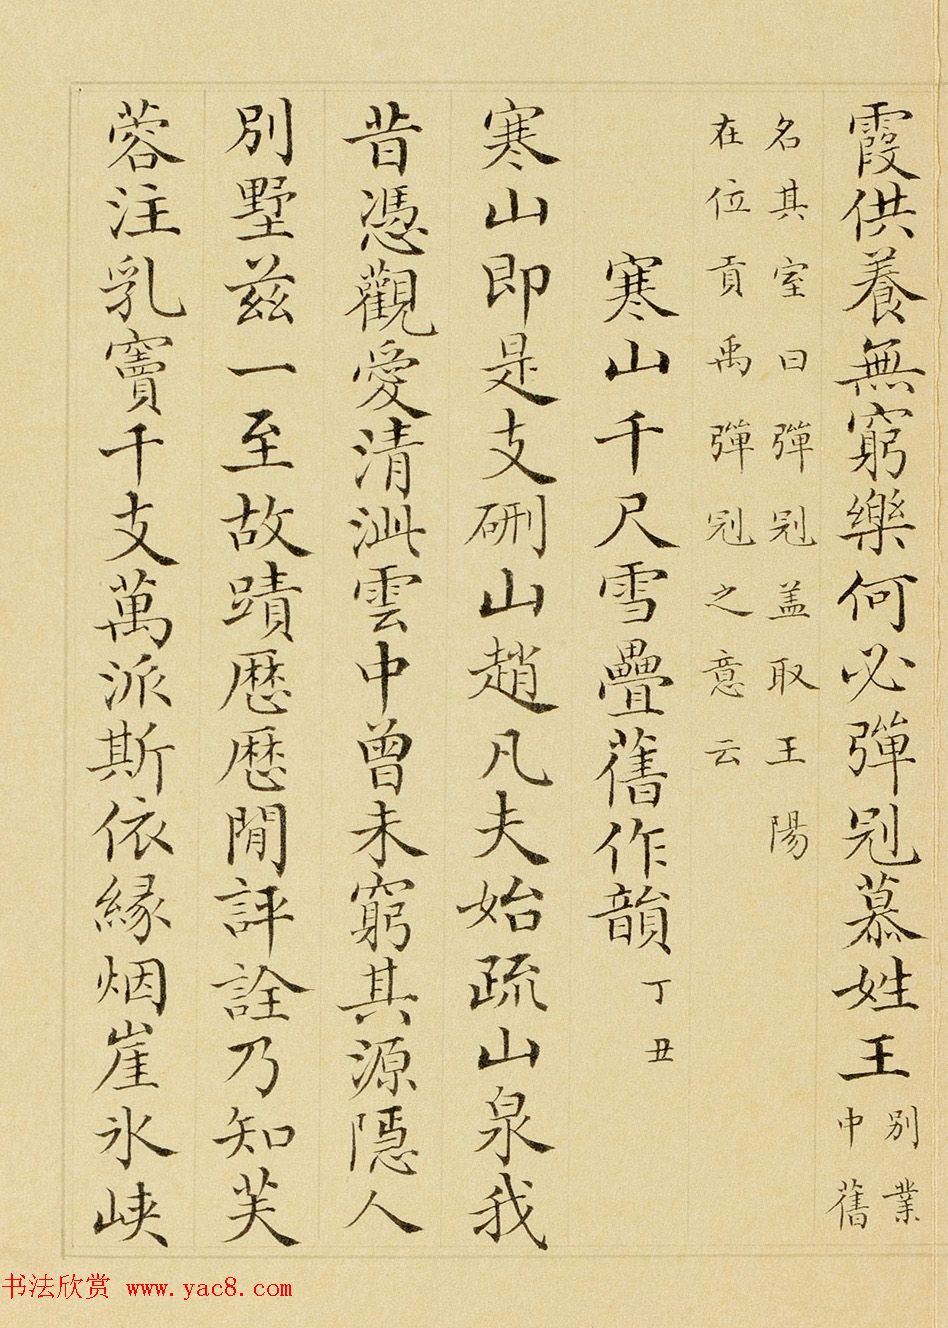 霞供養無窮樂何必彈冠慕姓王
別業
中舊
名其室曰彈冠盖取王陽
在位貢禹彈冠之意云
寒山千尺雪疊舊作韻 丁丑
寒山即是支硎山趙凡夫始疏山泉我
昔憑觀愛清泚雲中曾未窮其源隱人
別墅茲一至故蹟歷歷閒評詮乃知芙
蓉注乳竇千支萬派斯依緣烟崖氷峽
书法欣赏 www.yac8.com